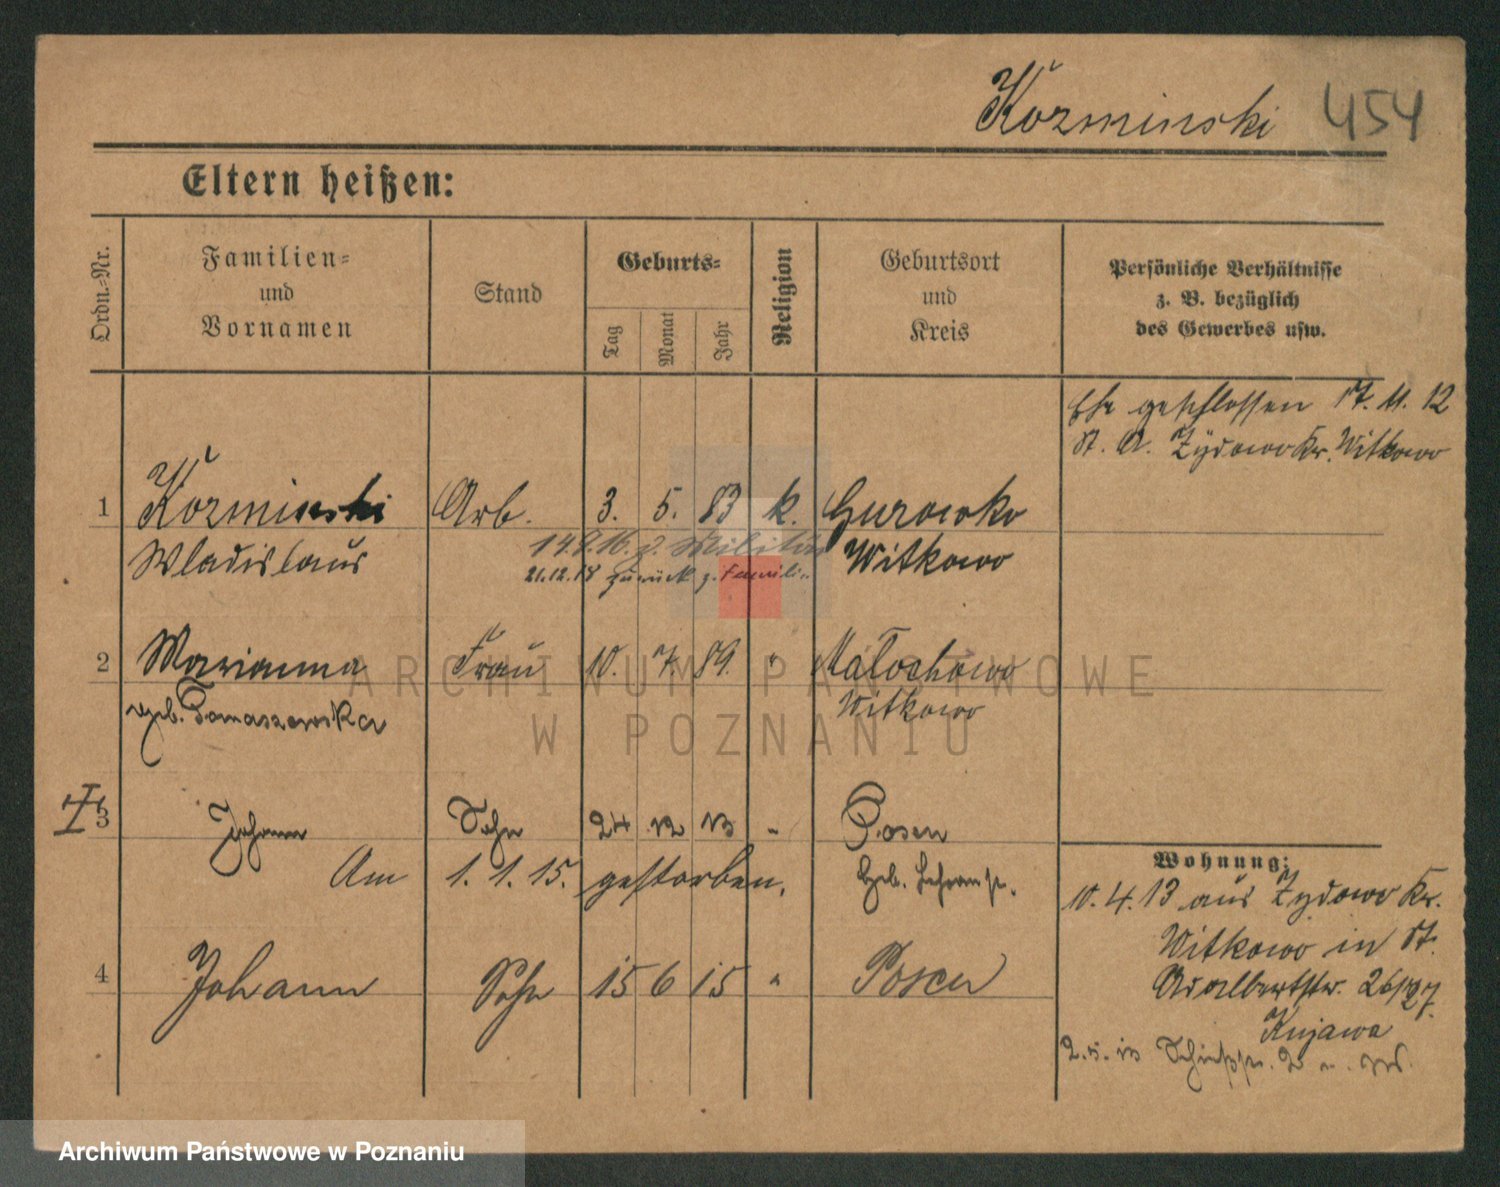 Kozminski 454
Eltern heißen:
Ordn.-Nr.
Familien- und Vornamen
Stand
Geburts-
Tag
Monat
Jahr
Religion
Geburtsort und Kreis
Persönliche Verhältnisse
z. B. bezüglich
des Gewerbes usw.
Ehe geschlossen 17. 11. 12
St. A. Żydowo Kr. Witkowo
1 Kozminski Arb. 3. 5. 83 k. Gurowko
Wladislaus 14.8.16. z. Militär Witkowo
21.12.18 zurück z. Famili
2 Marianna Frau 10. 7. 89. " Małochowo
geb. Tomaszewska Witkowo
3 Johann Sohn 24 12 13 " Posen
Am 1. 1. 15. gestorben.
4 Johann Sohn 15 6 15 " Posen
Wohnung:
10. 4. 13 aus Żydowo Kr.
Witkowo in St.
Adalbertstr. 26/27.
Kujawa
ARCHIWUM PAŃSTWOWE
W POZNANIU
Archiwum Państwowe w Poznaniu